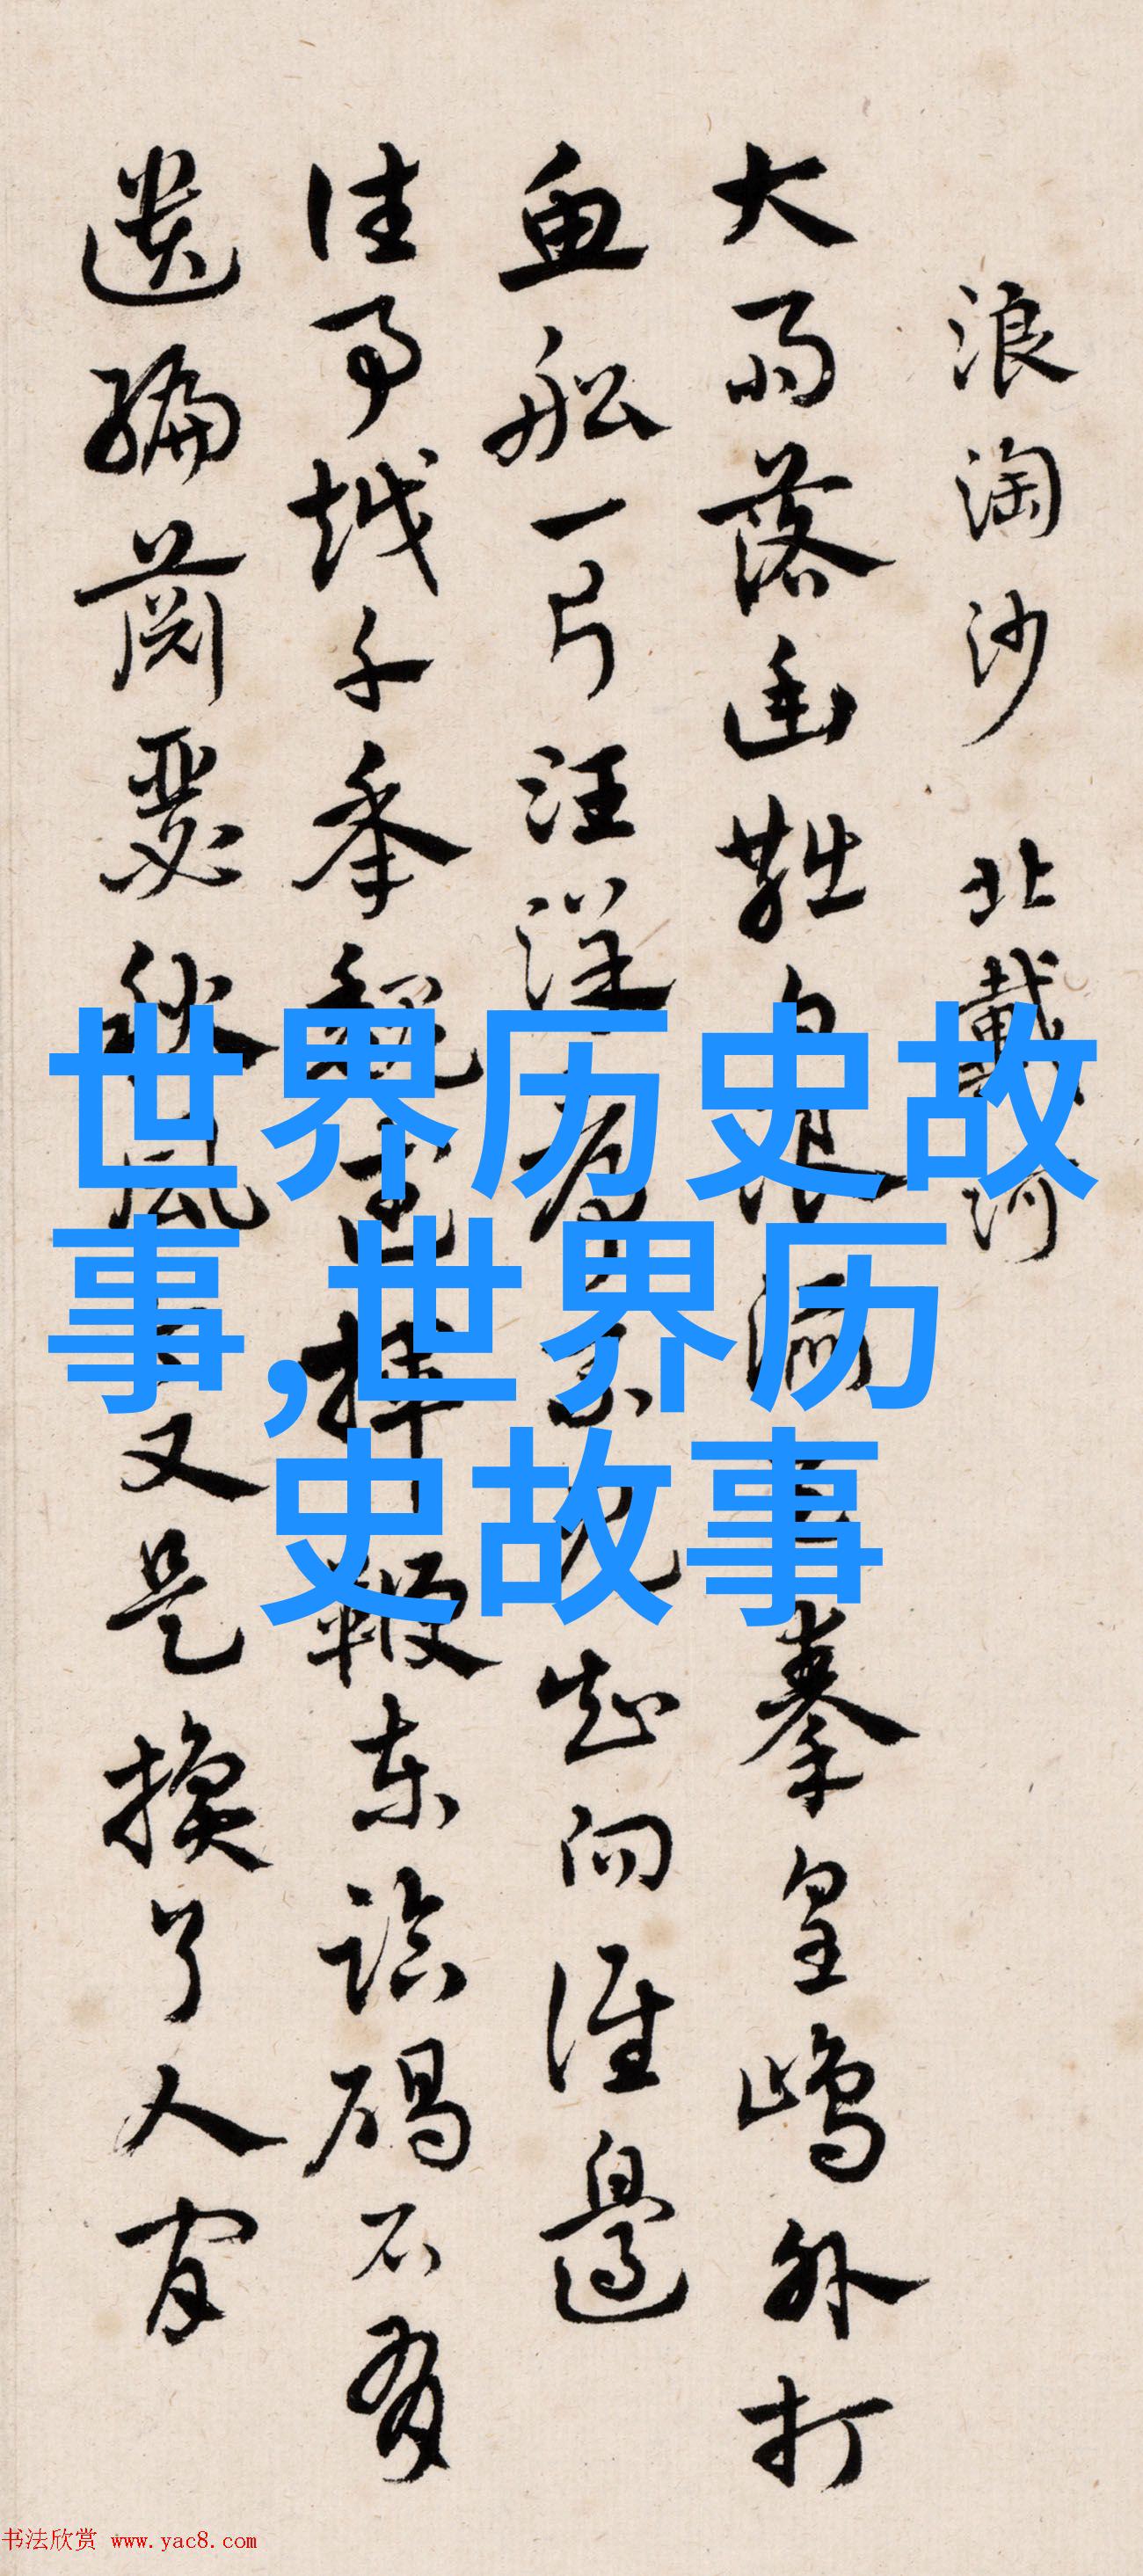 浪淘沙 北戴河
大雨落幽燕白浪滔 秦皇島外打
魚船一片汪洋都不見知向誰邊
往事越千年魏武揮鞭東臨碣石有
遺編蕭瑟秋風 又是換了人間
世界历史故
事,世界历
史故事
书法欣赏 www.yac8.com